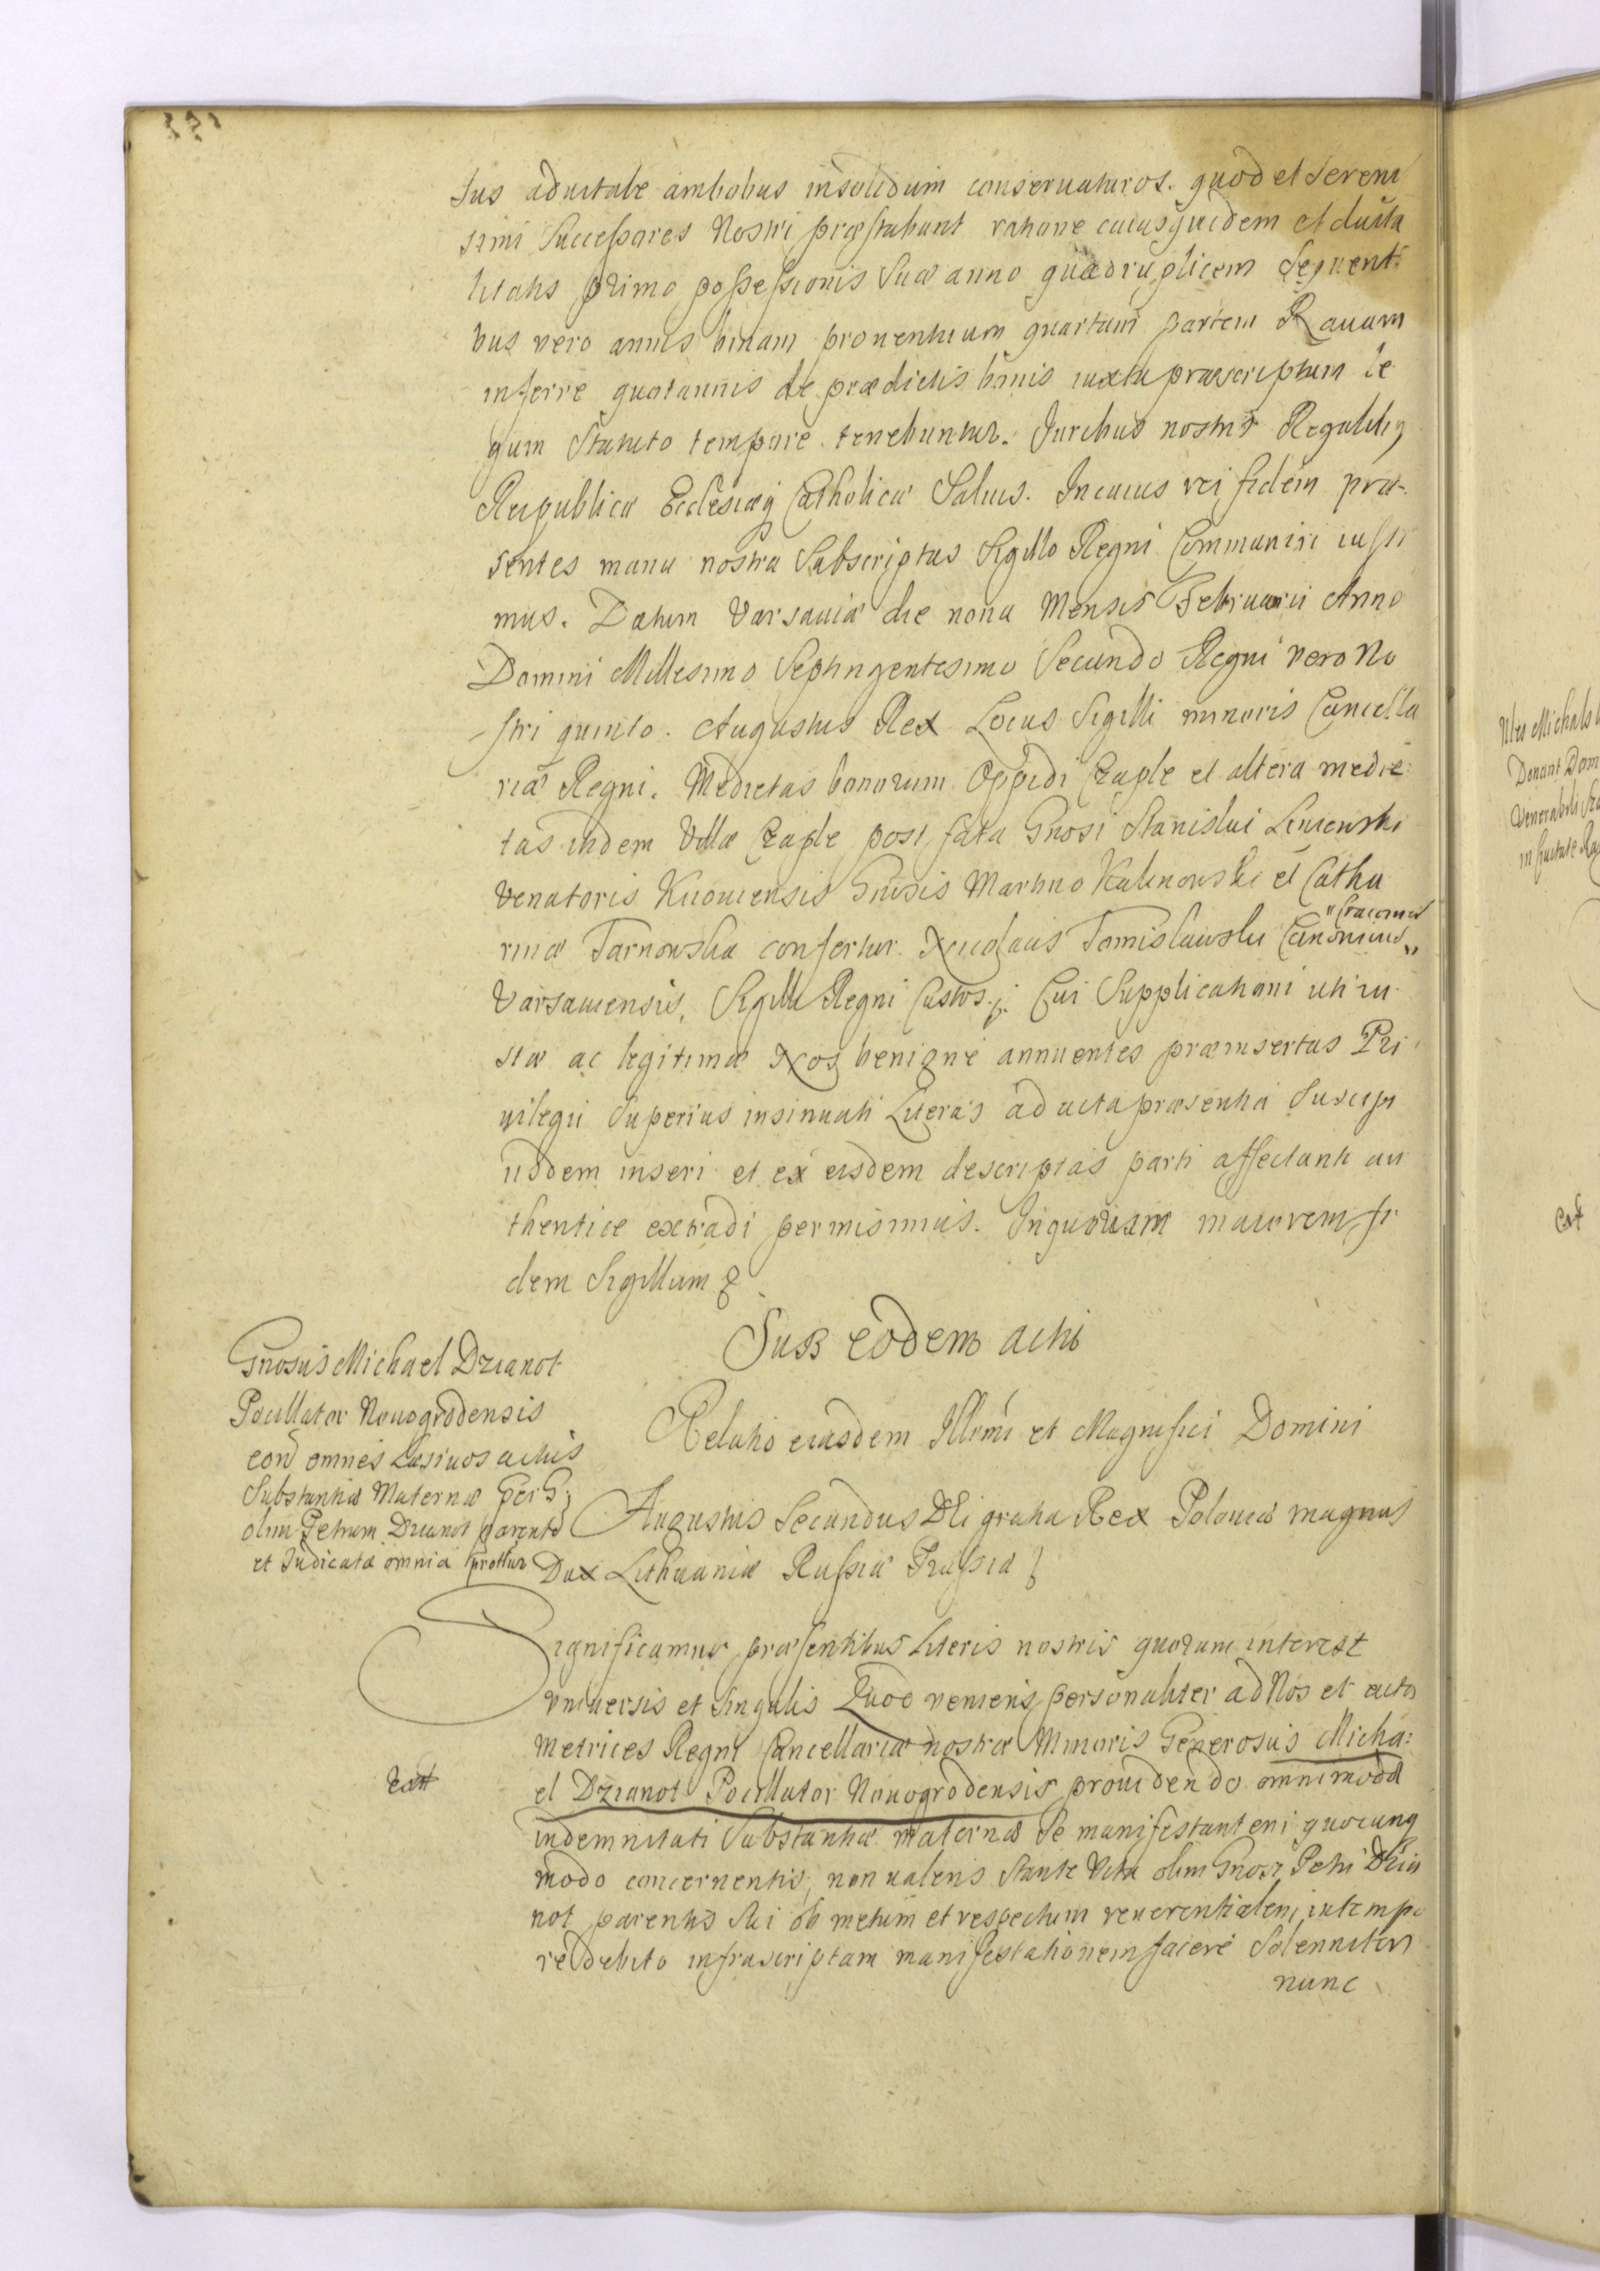 Ius aduitale ambobus insolidum conseruaturos. quod et Sereni
ssimi Successores Nostri præstabunt ratione cuiusquidem et ducta
litatis primo possessionis Suæ anno quadruplicem Sequenti
bus vero annis binam prouentuum quartam partem Rauam
inferre quotannis de prædictis bonis iuxta præscriptum le
gum Statuto tempore tenebuntur. Iuribus nostris Regalibq
Reipublicæ Ecclesiæq Catholicæ Saluis. In cuius rei fidem præ-
sentes manu nostra Subscriptas Sigillo Regni Communiri iussi
mus. Datum Varsauiæ die nona Mensis Februarii Anno
Domini Millesimo Septingentesimo Secundo Regni vero No
stri quinto. Augustus Rex Locus Sigilli minoris Cancella
riæ Regni. Medietas bonorum Oppidi Czaple et altera medie:
tas itidem Villæ Czaple post fata Gnosi Stanislai
Venatoris Kiiouiensis Gnosis Martino Kalinowski et Catha
rinæ Tarnowska confertur. Nicolaus Tomisławski Canonicus
"Cracouien
Varsauiensis, Sigilli Regni Custos. Cui Supplicationi uti iu
stæ ac legitimæ Nos benigne annuentes præinsertas Pri
uilegii Superius insinuati Literas ad acta præsentia Suscipi
iisdem inseri et ex eisdem descriptas parti affectanti au
thentice extradi permisimus. In quorum maiorem fi
dem Sigillum &
Sub eodem actu
Gnosus Michael Dzianot
Pocillator Nouogrodensis
con omnes Læsiuos actus
Substantiæ Maternæ per G:
olim Petrum Dzianot parente
et Iudicata omnia prottur
Relatio eiusdem Illmi et Magnifici Domini
Augustus Secundus DEi gratia Rex Poloniæ magnus
Dux Lithuaniæ Russiæ Prussiæ &
Significamus præsentibus Literis nostris quorum interest
vniuersis et Singulis Quod veniens personaliter ad Nos et acta
Metrices Regni Cancellariæ nostræ Minoris Generosus Micha:
Extt
el Dzianot Pocillator Nouogrodensis prouidendo omnimodæ
indemnitati Substantiæ maternæ Se manifestantem quocunq
modo concernentis, non valens Stante Vita olim Gnosi Petri Dzia
not parentis Sui ob metum et respectum reuerentialem in tempo
re debito infrascriptam manifestationem facere Solenniter
nunc
Donant Dom
Venerabili
Ext